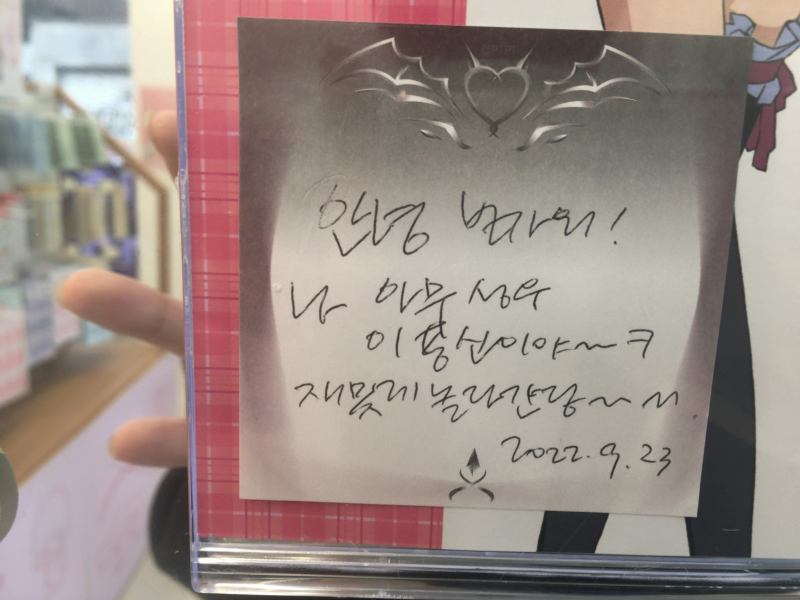 안녕
나 아무 성우
이용신이야~ㅋ
재밌게 놀다간당~
2022.9.23